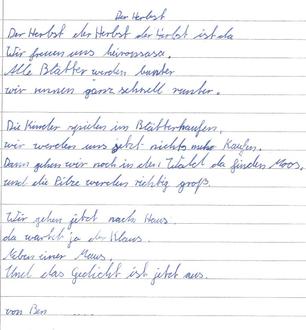 Der Herbst
Der Herbst der Herbst der Herbst ist da
Wir freuen uns
Alle Blätter werden bunter
wir rennen ganz schnell runter.
Die Kinder spielen im Blätterhaufen,
wir werden uns jetzt nichts mehr Kaufen.
Dann gehen wir noch in den Wald da finden Moos,
und die Pilze werden richtig groß.
Wir gehen jetzt nach Haus.
da wartet ja der Klaus.
Neben einer Maus,
Und das Gedicht ist jetzt aus.
von Ben